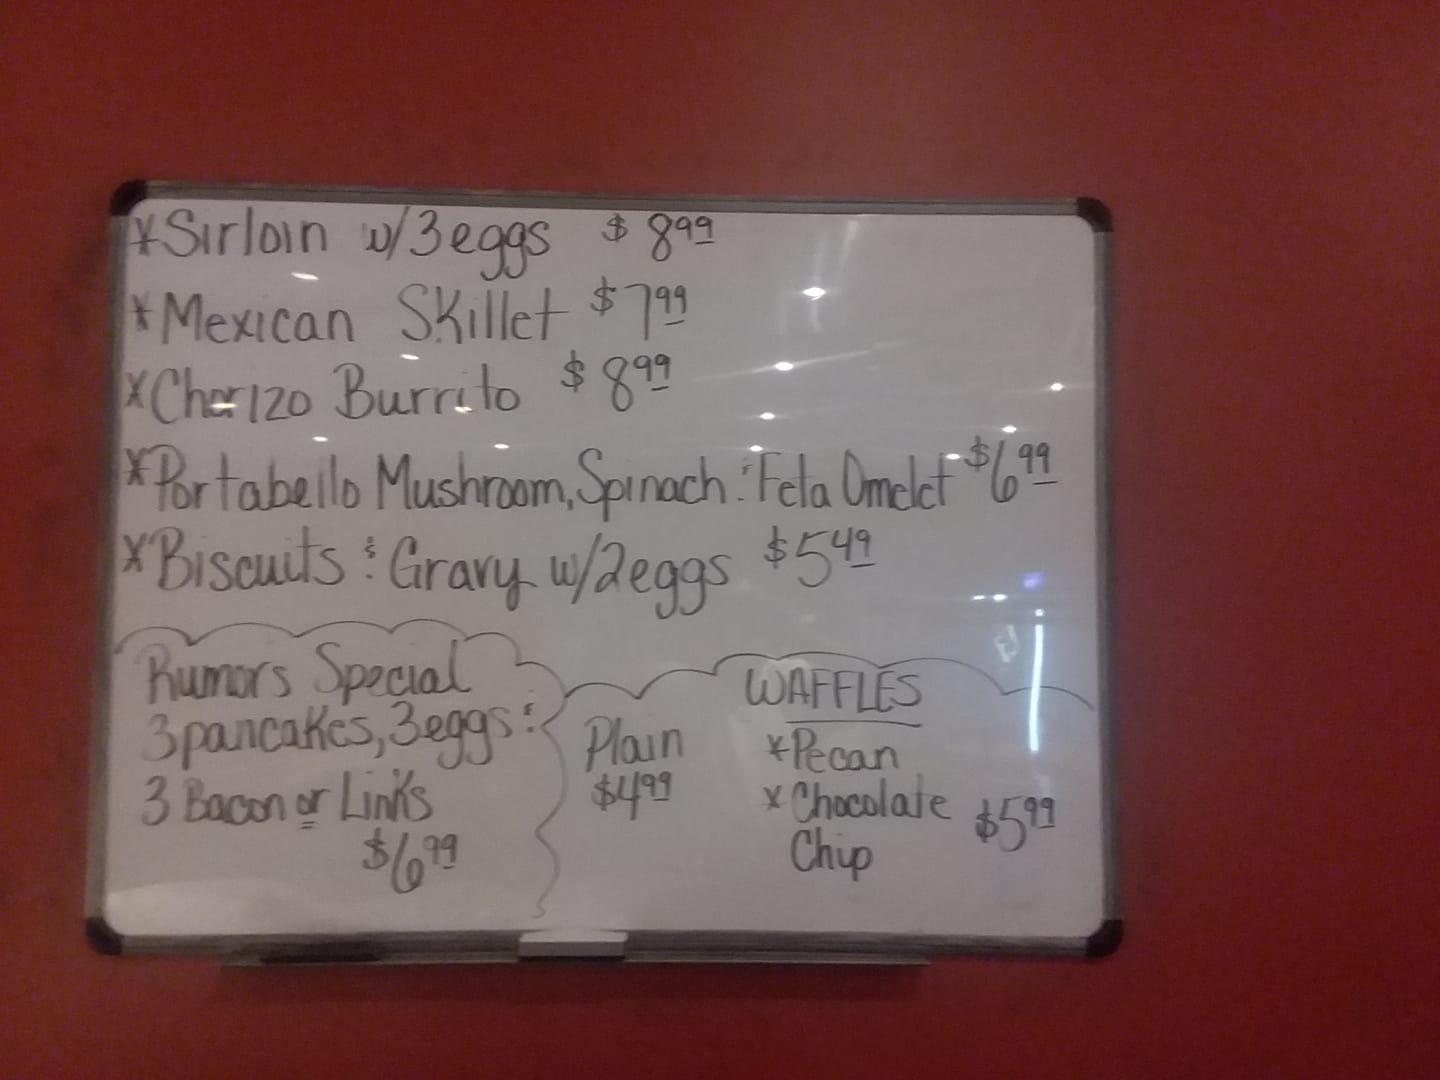 *Sirloin w/3eggs $8.99
*Mexican Skillet $7.99
*Chorizo Burrito $8.99
*Portabello Mushroom, Spinach & Feta Omelet $6.99
*Biscuits & Gravy w/2eggs $5.49
Rumors Special
3pancakes, 3eggs &
3 Bacon or Links
$6.99
WAFFLES
Plain
$4.99
*Pecan
*Chocolate $5.99
Chip